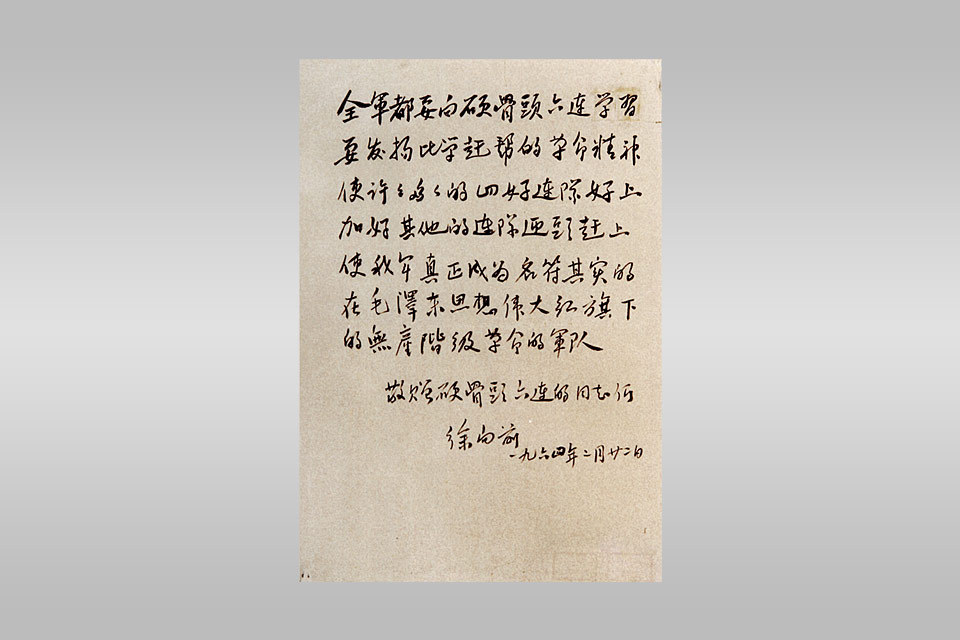 全軍都要向硬骨頭六连学習
要发揚比学赶帮的革命精神
使许许多多的四好連隊好上
加好其他的連隊迎頭赶上
使我军真正成为名符其实的
在毛澤东思想伟大红旗下
的無産階級革命的軍队
敬贈硬骨頭六连的同志们
徐向前
一九六四年二月廿二日